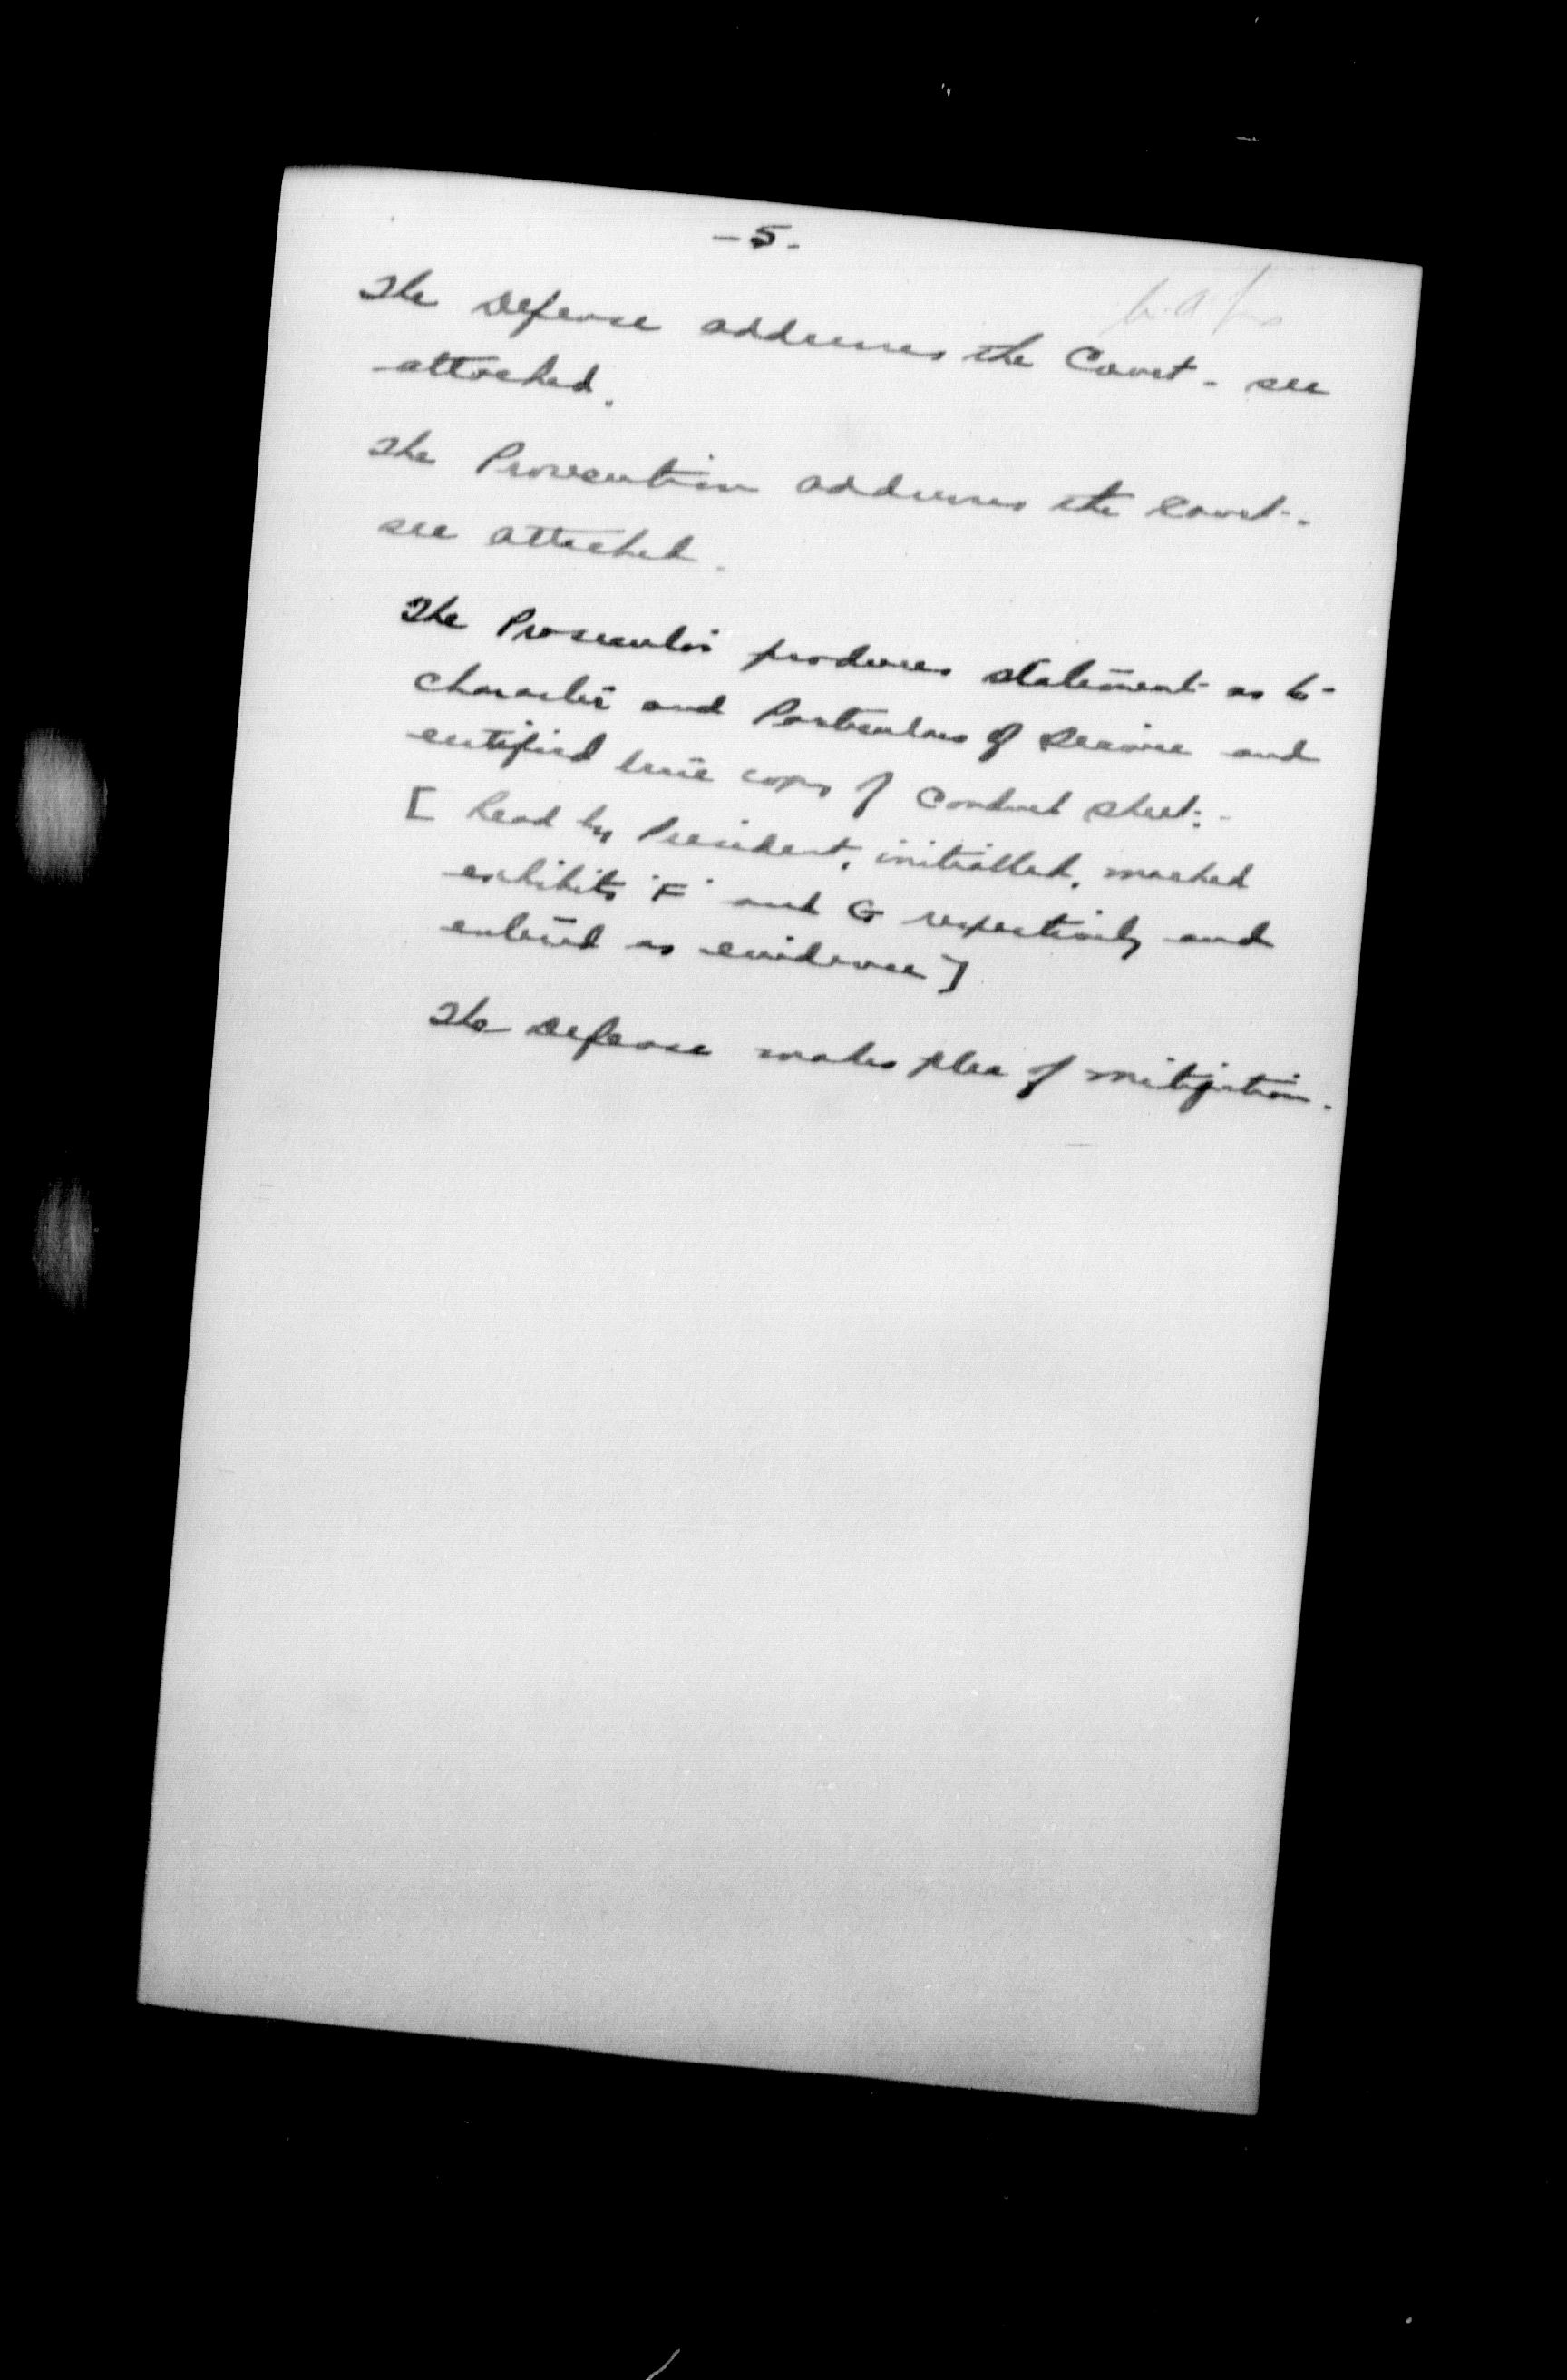 - 5 -
The Defense addresses the Court - see
attached.
The Prosecution addresses the Court -
see attached.
The Prosecutor produces statement as to
character and Particulars of Service and
certified true copy of Conduct Sheet: -
[ Read by President, initialled, marked
exhibits "F" and G respectively and
entered as evidence ]
The Defense makes plea of mitigation.